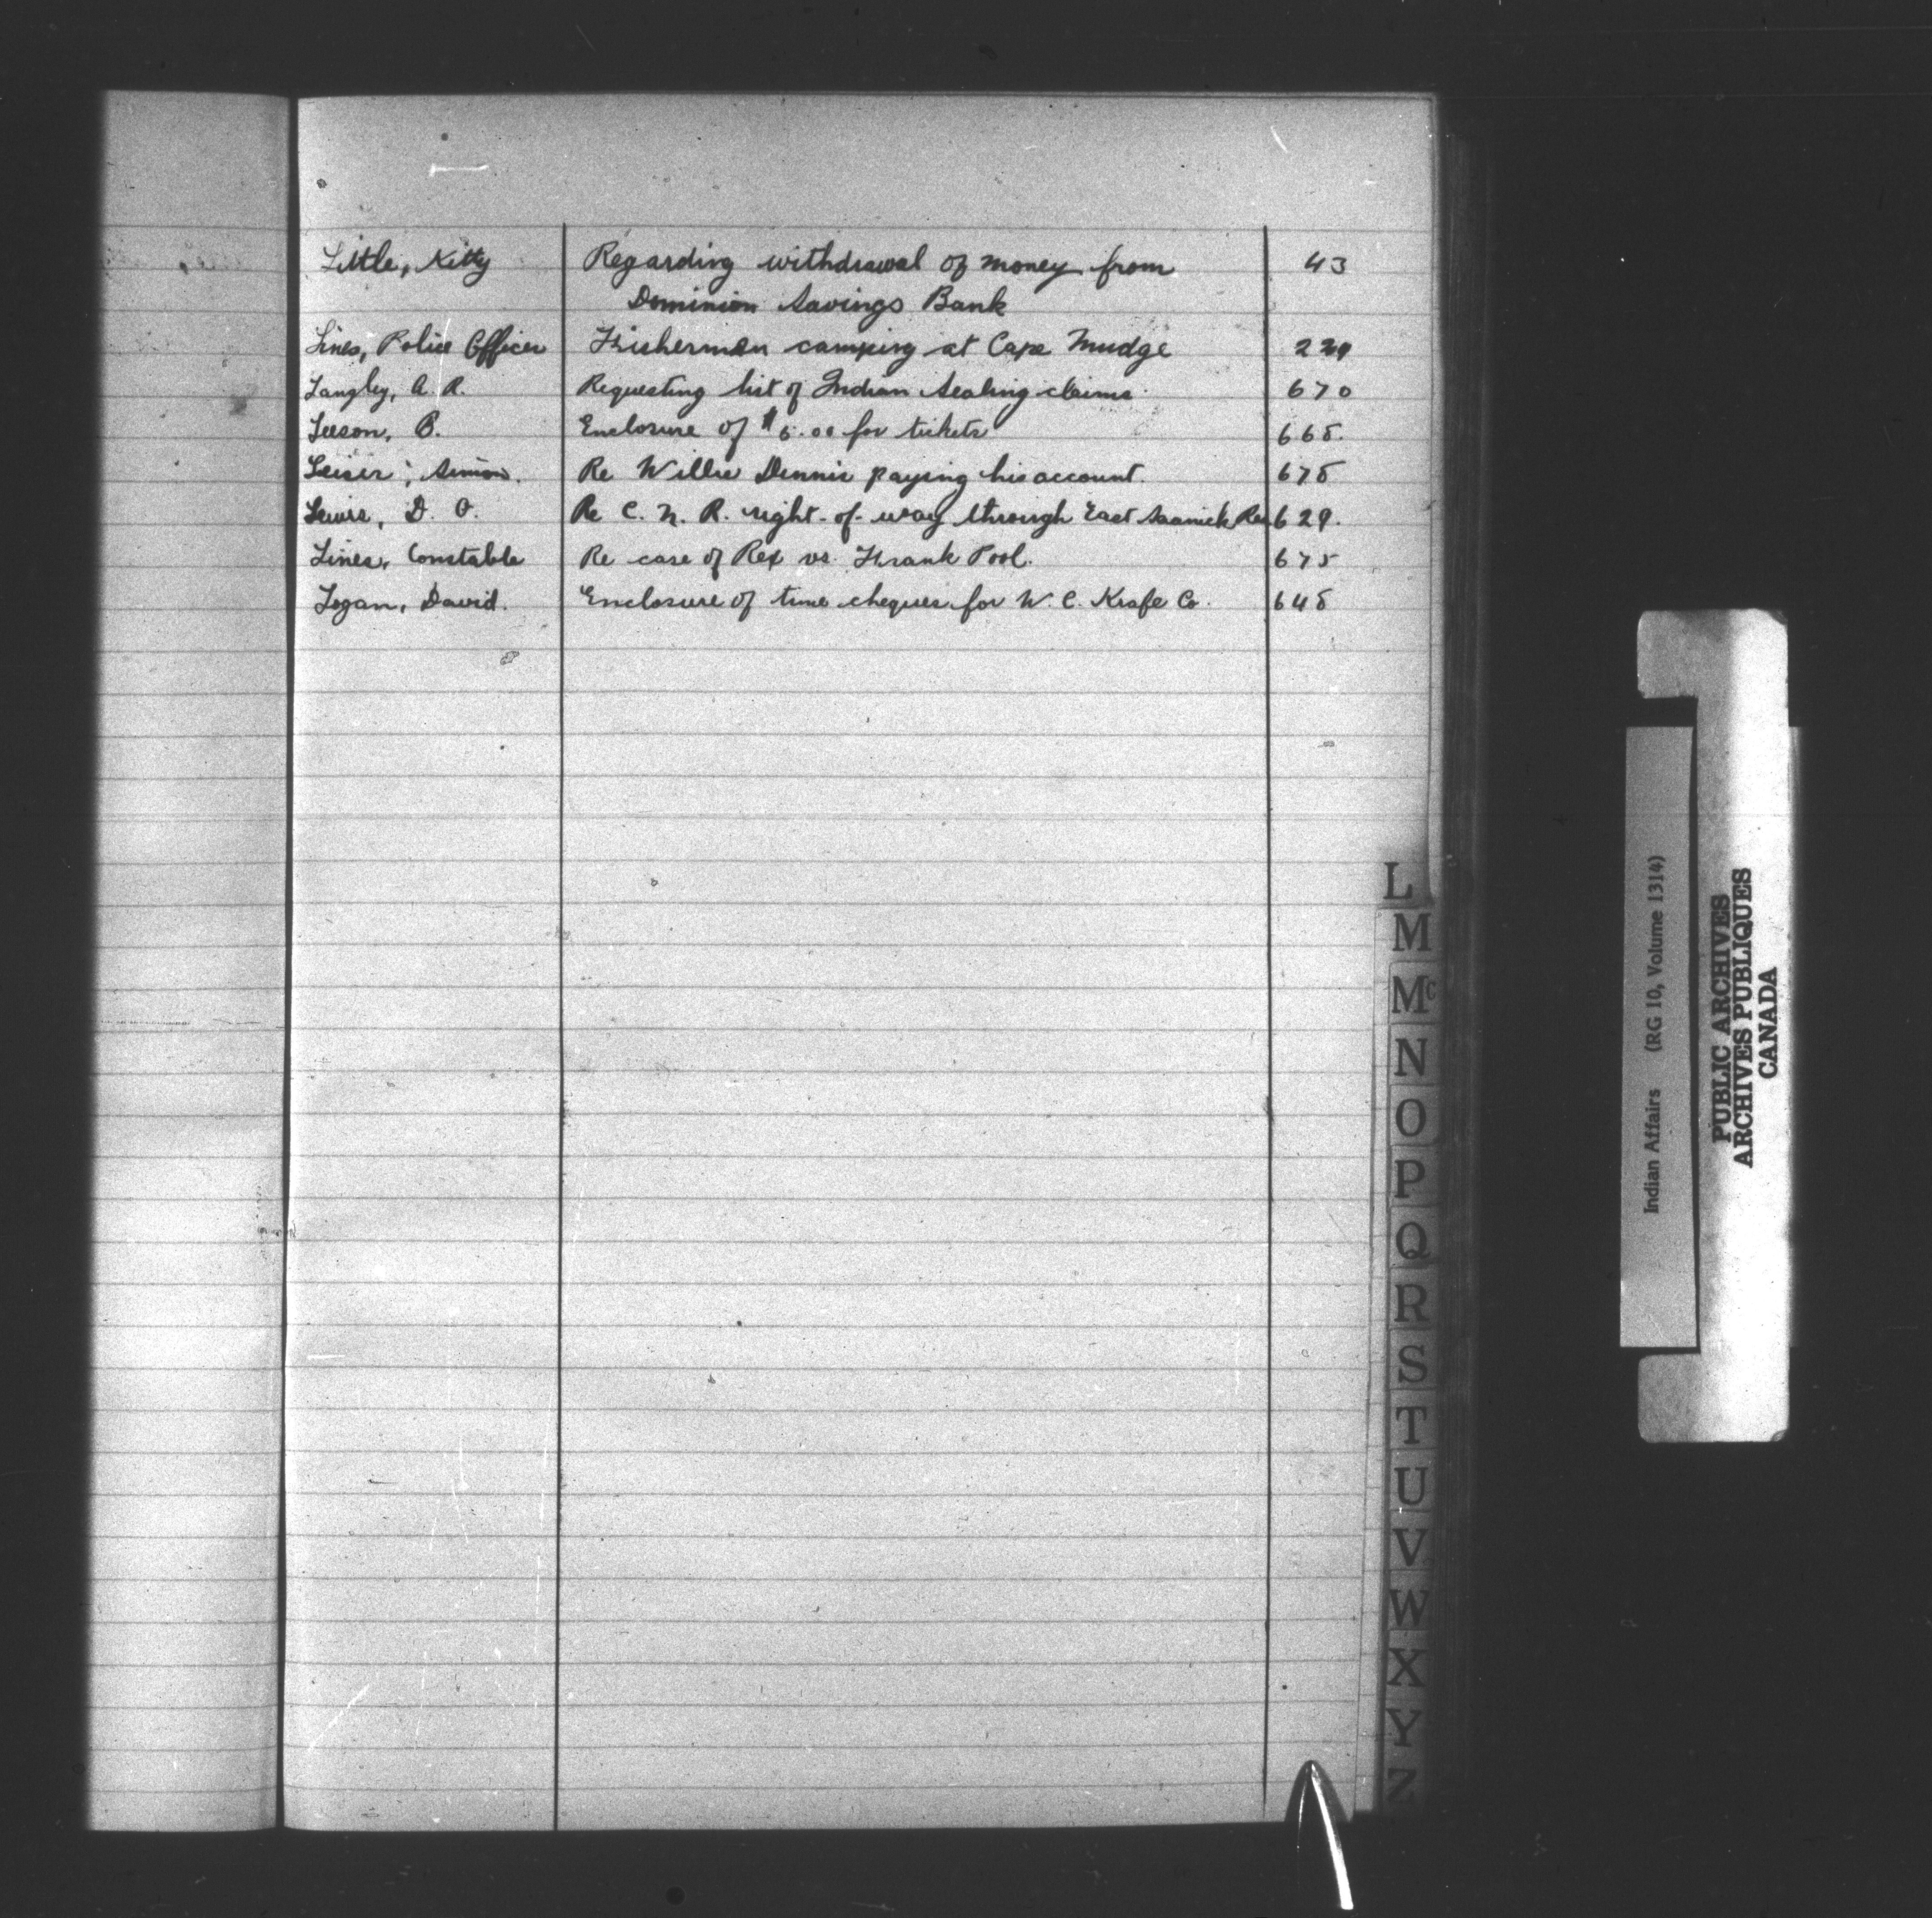 Little, Kitty Regarding withdrawal of money from 43
Dominion Savings Bank
Lines, Police Officer Fisherman camping at Cape Mudge
Langley, A. R. Requesting list of Indian Sealing claims. 670
Leeson, B. Enclosure of $5.00 for tickets 665.
Leiser; Simon. Re Willie Dennis paying his account. 675
Lewis, D. O. Re C. N. R. right-of-way through East Saanich Res 629.
Lines, Constable Re case of Rex vs. Frank Pool. 675
Logan, David. Enclosure of time cheques for W. C. Co. 645
L
M
Mc
N
O
P
Q
R
S
T
U
V
W
X
Y
Z
Indian Affairs (RG 10, Volume 1314)
PUBLIC ARCHIVES
ARCHIVES PUBLIQUES
CANADA